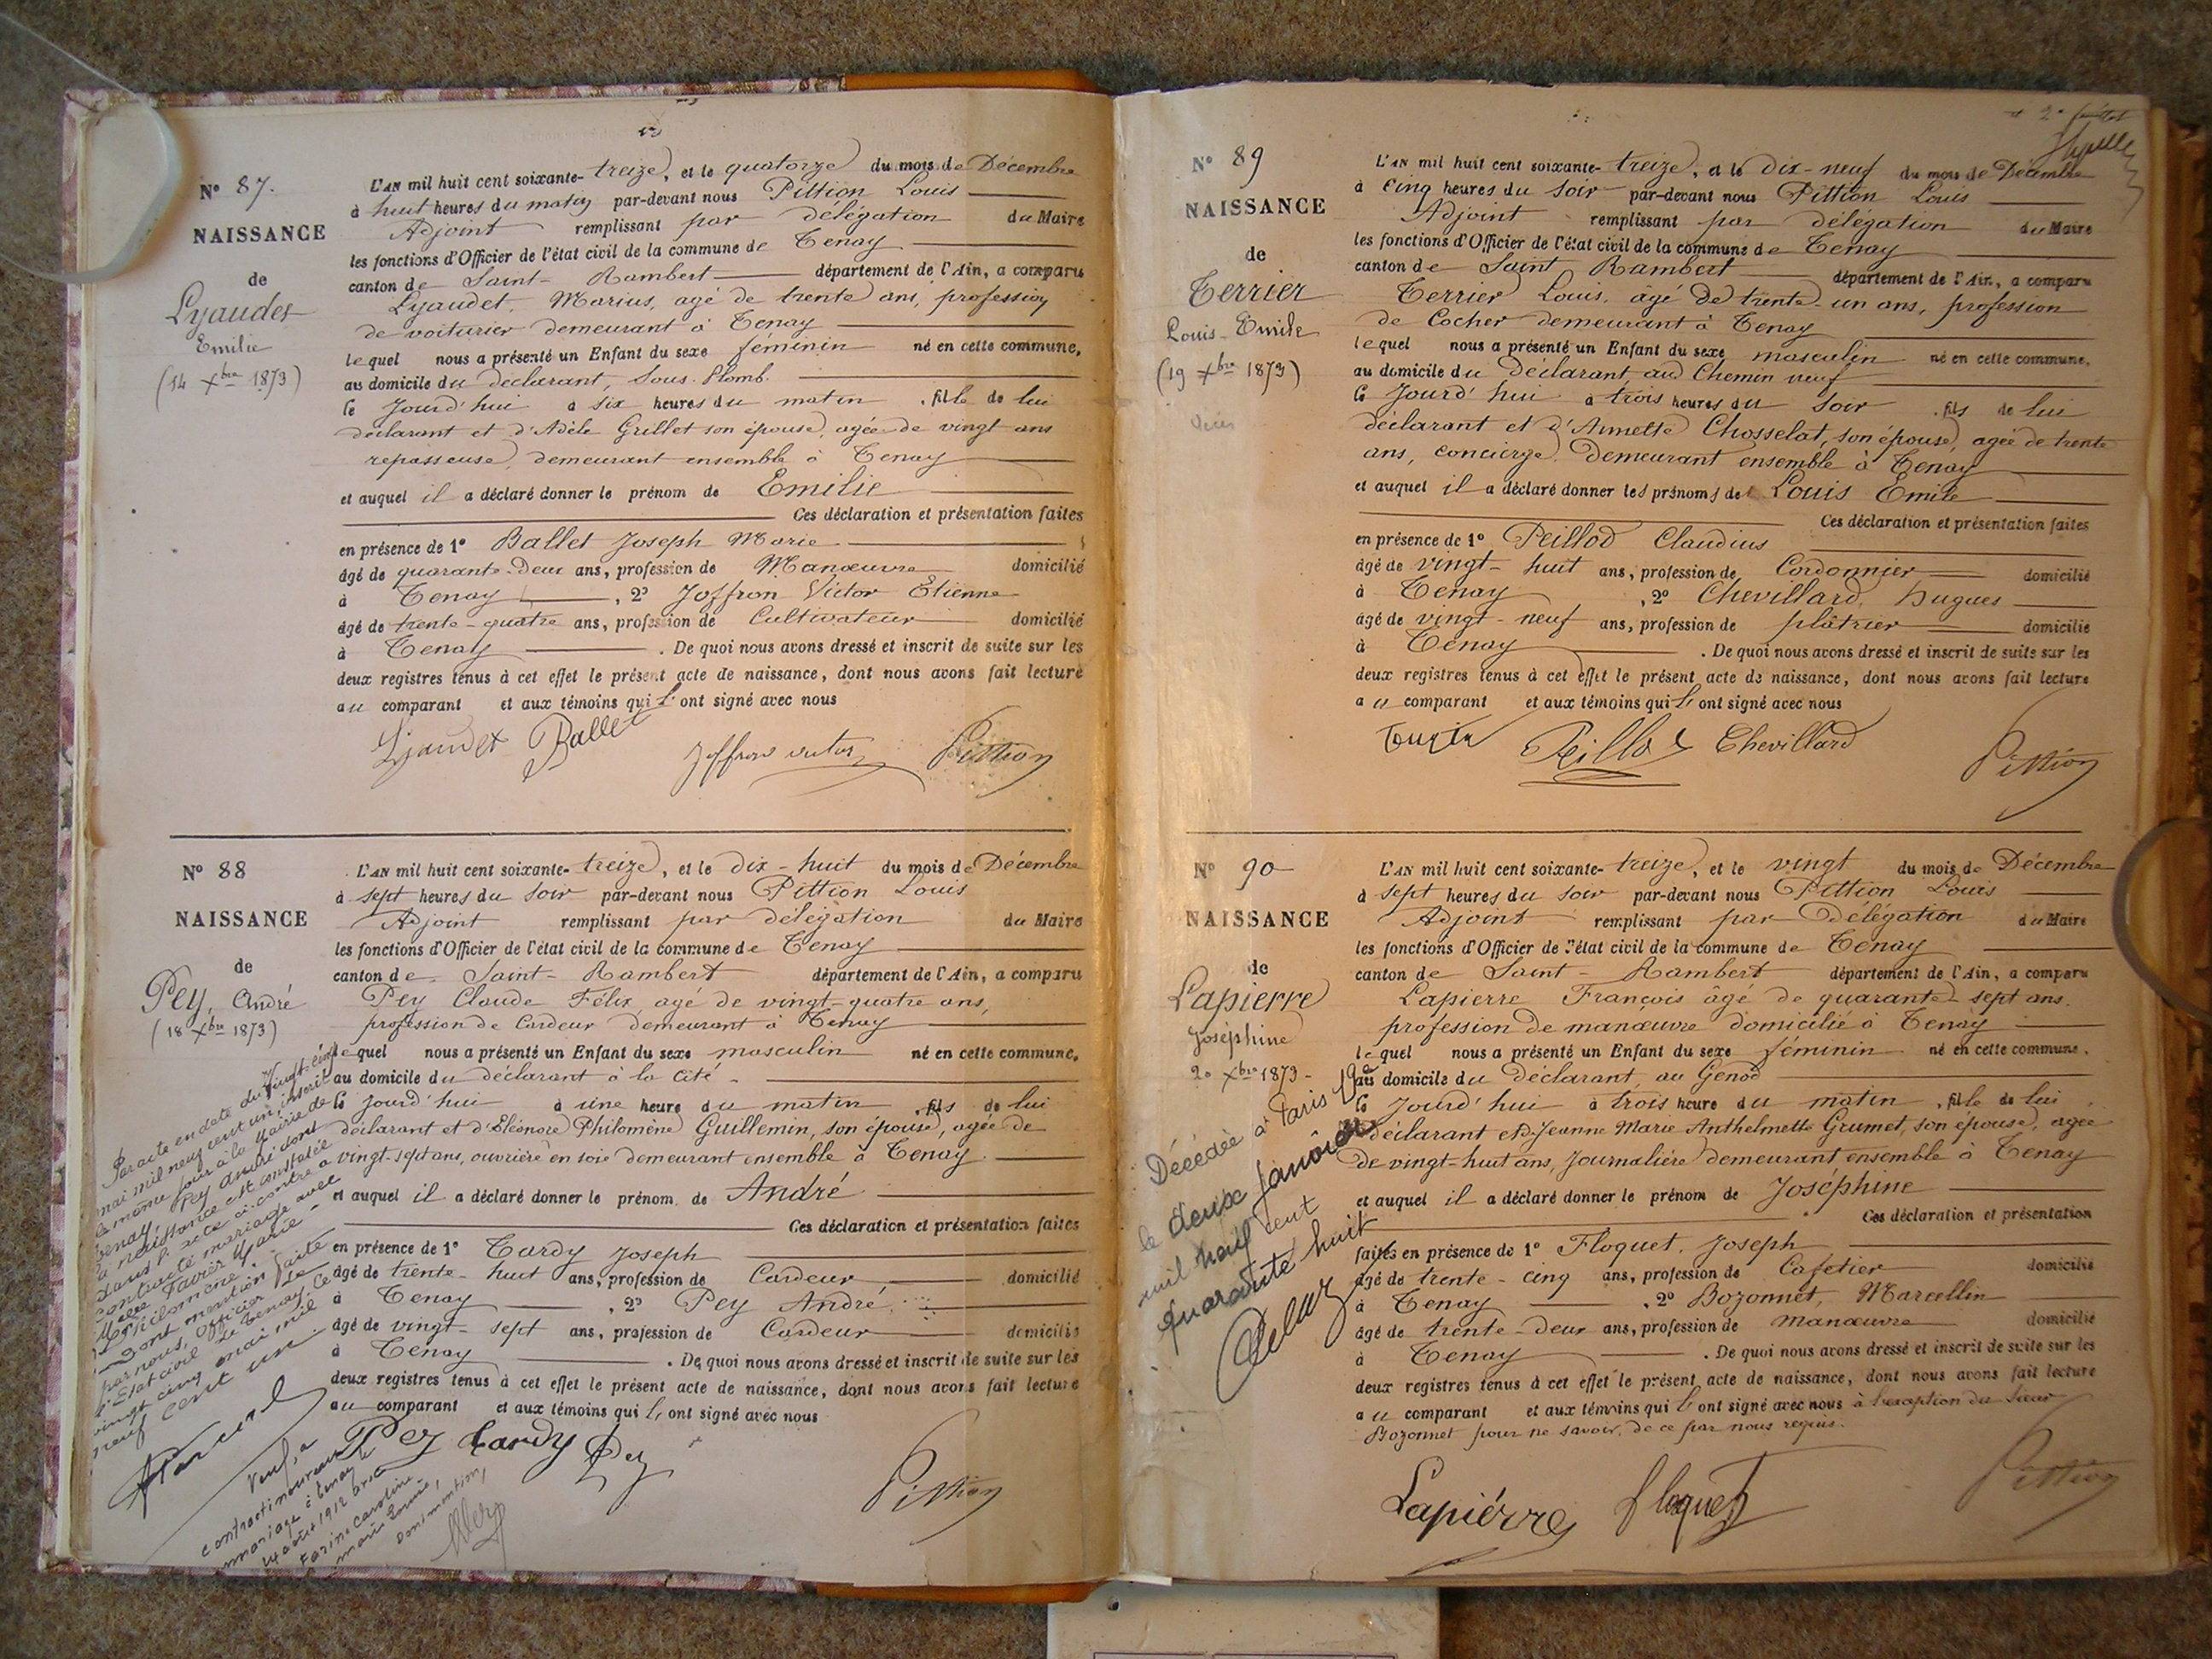 N° 87.
NAISSANCE
de
Lyaudet
Emilie
(14 Xbre 1873)
L'AN mil huit cent soixante-treize, et le quatorze du mois de Décembre
à huit heures du matin par-devant nous Pittion Louis
Adjoint remplissant par délégation du Maire
les fonctions d'Officier de l'état civil de la commune de Tenay
canton de Saint-Rambert département de l'Ain, a comparu
Lyaudet, Marius, agé de trente ans, profession
de voiturier demeurant à Tenay
lequel nous a présenté un Enfant du sexe féminin né en cette commune,
au domicile du déclarant, Sous-Plomb.
le Jourd'hui à six heures du matin, fille de lui
déclarant et d'Adèle Grillet son épouse, agée de vingt ans
repasseuse, demeurant ensemble à Tenay
et auquel il a déclaré donner le prénom de Emilie
Ces déclaration et présentation faites
en présence de 1° Ballet Joseph Marie
âgé de quarante-deux ans, profession de Manœuvre domicilié
à Tenay, 2° Joffron Victor Etienne
âgé de trente-quatre ans, profession de Cultivateur domicilié
à Tenay. De quoi nous avons dressé et inscrit de suite sur les
deux registres tenus à cet effet le présent acte de naissance, dont nous avons fait lecture
au comparant et aux témoins qui l'ont signé avec nous
Lyaudet Ballet Joffron victor Pittion
N° 88
NAISSANCE
de
Pey, André
(18 Xbre 1873)
L'AN mil huit cent soixante-treize, et le dix-huit du mois de Décembre
à sept heures du soir par-devant nous Pittion Louis
Adjoint remplissant par délégation du Maire
les fonctions d'Officier de l'état civil de la commune de Tenay
canton de Saint-Rambert département de l'Ain, a comparu
Pey Claude Félix, agé de vingt-quatre ans,
profession de Cardeur demeurant à Tenay
lequel nous a présenté un Enfant du sexe masculin né en cette commune,
au domicile du déclarant à la Cité.
le Jourd'hui à une heure du matin, fils de lui
déclarant et d'Eléonore Philomène Guillemin, son épouse, agée de
vingt-sept ans, ouvrière en soie demeurant ensemble à Tenay
et auquel il a déclaré donner le prénom de André
Ces déclaration et présentation faites
en présence de 1° Tardy Joseph
âgé de trente-huit ans, profession de Cardeur domicilié
à Tenay, 2° Pey André
âgé de vingt-sept ans, profession de Cardeur domicilié
à Tenay. De quoi nous avons dressé et inscrit de suite sur les
deux registres tenus à cet effet le présent acte de naissance, dont nous avons fait lecture
au comparant et aux témoins qui l'ont signé avec nous
Pey Tardy Pey
Pittion
Par acte en date du vingt-cinq
mai mil neuf cent un, inscrit
le même jour à la Mairie de
Tenay, Pey André dont
la naissance est constatée
dans l'acte ci-contre a
contracté mariage avec
Melle Favier Marie-
Philomène.
Dont mention faite
par nous, Officier de
l'Etat civil de Tenay, ce
vingt cinq mai mil
neuf cent un
Veuf, a
contracté nouveau
mariage à Tenay le
24 août 1912 avec
Farine Caroline
Marie Louise,
Dont mention,
N° 89
NAISSANCE
de
Terrier
Louis-Emile
(19 Xbre 1873)
L'AN mil huit cent soixante-treize, et le dix-neuf du mois de Décembre
à Cinq heures du soir par-devant nous Pittion Louis
Adjoint remplissant par délégation du Maire
les fonctions d'Officier de l'état civil de la commune de Tenay
canton de Saint Rambert département de l'Ain, a comparu
Terrier Louis, âgé de trente-un ans, profession
de Cocher demeurant à Tenay
lequel nous a présenté un Enfant du sexe masculin né en cette commune,
au domicile du déclarant au Chemin neuf
le Jourd'hui à trois heures du soir, fils de lui
déclarant et d'Annette Chosselat, son épouse, agée de trente
ans, concierge, demeurant ensemble à Tenay
et auquel il a déclaré donner les prénoms de Louis Emile
Ces déclaration et présentation faites
en présence de 1° Peillod Claudius
âgé de vingt-huit ans, profession de Cordonnier domicilié
à Tenay, 2° Chevillard, Hugues
âgé de vingt-neuf ans, profession de plâtrier domicilié
à Tenay. De quoi nous avons dressé et inscrit de suite sur les
deux registres tenus à cet effet le présent acte de naissance, dont nous avons fait lecture
au comparant et aux témoins qui l'ont signé avec nous
Peillod Chevillard
Pittion
N° 90
NAISSANCE
de
Lapierre
Joséphine
20 Xbre 1873-
L'AN mil huit cent soixante-treize, et le vingt du mois de Décembre
à sept heures du soir par-devant nous Pittion Louis
Adjoint remplissant par délégation du Maire
les fonctions d'Officier de l'état civil de la commune de Tenay
canton de Saint-Rambert département de l'Ain, a comparu
Lapierre François âgé de quarante-sept ans.
profession de manœuvre domicilié à Tenay
lequel nous a présenté un Enfant du sexe féminin né en cette commune.
au domicile du déclarant, au Genod
le Jourd'hui à trois heure du matin, fille de lui
déclarant et de Jeanne Marie Anthelmette Grumet, son épouse, agée
de vingt-huit ans, Journalière demeurant ensemble à Tenay
et auquel il a déclaré donner le prénom de Joséphine
Ces déclaration et présentation
faites en présence de 1° Floquet, Joseph
âgé de trente-cinq ans, profession de Cafetier domicilié
à Tenay, 2° Bozonnet, Marcellin
âgé de trente-deux ans, profession de manœuvre domicilié
à Tenay. De quoi nous avons dressé et inscrit de suite sur les
deux registres tenus à cet effet le présent acte de naissance, dont nous avons fait lecture
au comparant et aux témoins qui l'ont signé avec nous à l'exception du sieur
Bozonnet pour ne savoir, de ce par nous requis.
Lapiérre floquet Pittion
Décédée à Paris 19e
le deux janvier
mil neuf cent
quarante huit